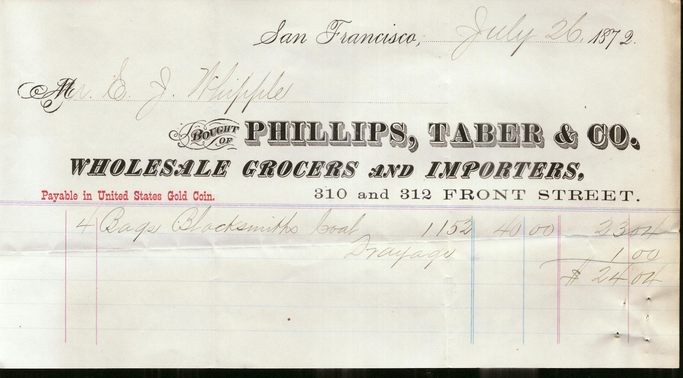 San Francisco, July 26, 1872.
Mr. E. J. Whipple
BOUGHT OF PHILLIPS, TABER & CO.
WHOLESALE GROCERS AND IMPORTERS,
Payable in United States Gold Coin. 310 and 312 FRONT STREET.
4 Bags Blacksmiths Coal 1152 40 00 23 04
Drayage 1 00
$ 24 04